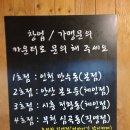 창업 / 가맹문의
카운터로 문의해 주세요
1호점 : 인천 만수동(본점)
2호점 : 안산 본오동(체인점)
3호점 : 시흥 정왕동(체인점)
4호점 : 부천 심곡동(직영점)